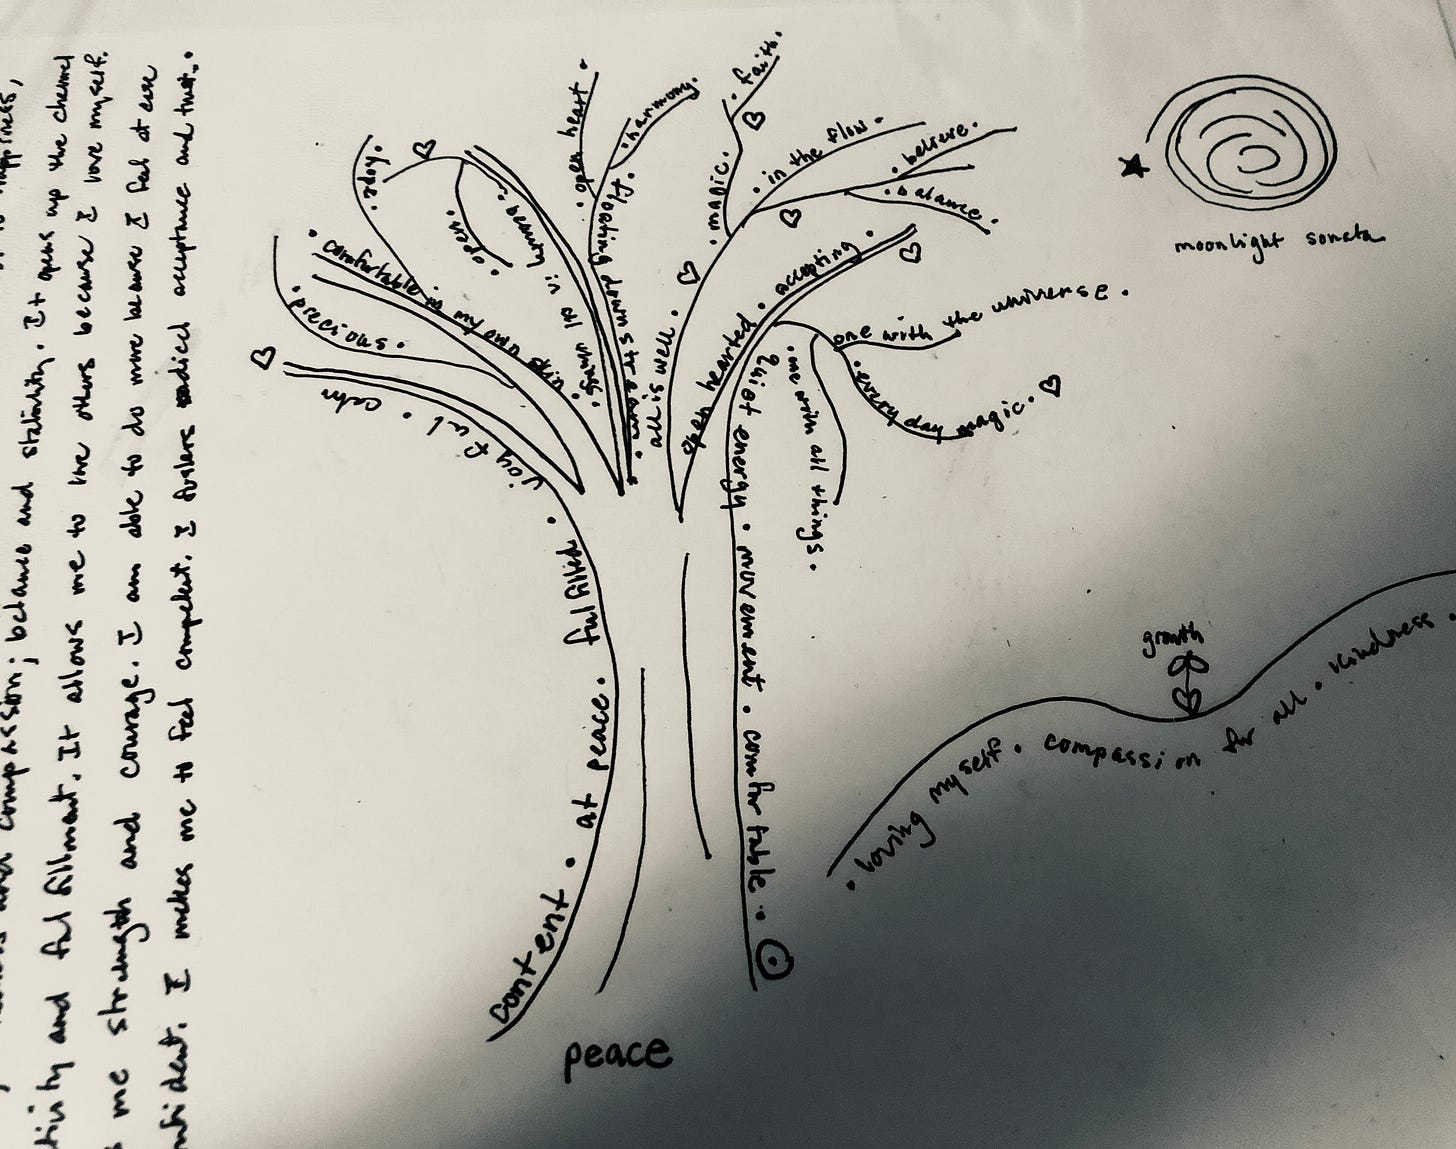 happiness,
and compassion; balance and stability. It opens up the channel
and fulfillment. It allows me to love others because I love myself.
me strength and courage. I am able to do more because I feel at ease
I makes me to feel competent. I fosters radical acceptance and trust.
content. at peace. fulfilled. joyful. calm
precious.
comfortable in my own skin.
open.
open heart.
harmony.
all is well.
magic.
faith.
in the flow.
believe.
balance.
open hearted. accepting.
quiet energy. movement. comfortable.
one with all things.
one with the universe.
every day magic.
peace
moonlight sonata
growth
loving myself. compassion for all. kindness.